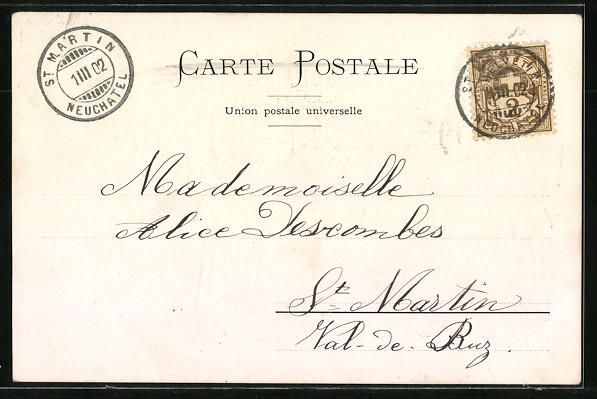 ST MARTIN
1 III 02
NEUCHATEL
CARTE POSTALE
Union postale universelle
HELVETIA
III 02
2
NEUCHATEL
Mademoiselle
Alice Descombes
St Martin
Val-de-Ruz.